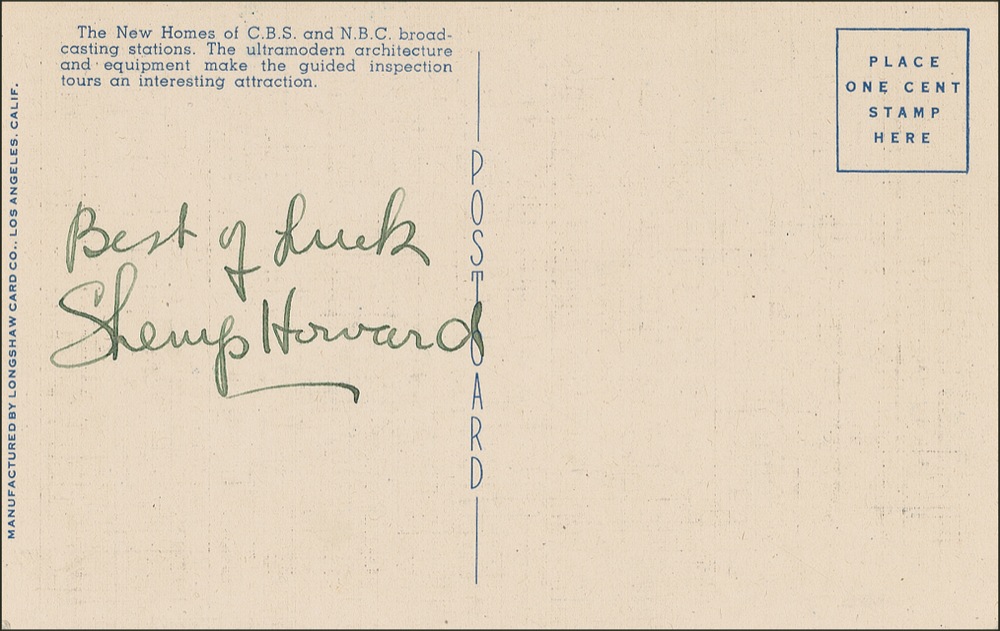 The New Homes of C.B.S. and N.B.C. broad-
casting stations. The ultramodern architecture
and equipment make the guided inspection
tours an interesting attraction.
MANUFACTURED BY LONGSHAW CARD CO., LOS ANGELES, CALIF.
Best of Luck
Shemp Howard
POST CARD
PLACE
ONE CENT
STAMP
HERE